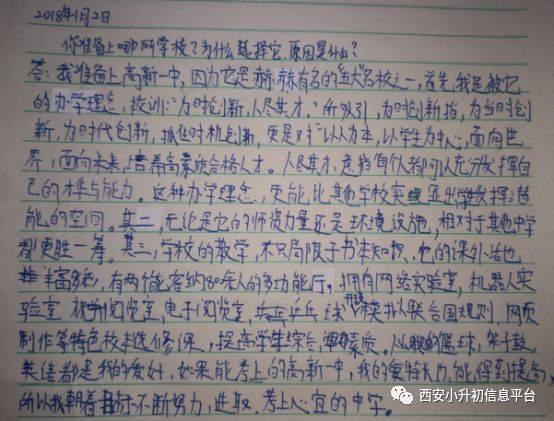 2018年1月2日
你准备上哪所学校?为什么选择它,原因是什么?
答:我准备上高新一中,因为它是赫赫有名的五大名校之一,首先,我是被它
的办学理念,校训:"为时创新,人尽其才,"所吸引,为时创新指,为当时创
新,为时代创新,抓住时机创新,更是对"以人为本,以学生为中心,面向世
界,面向未来,培养高素质合格人才。人尽其才,意指每个人都可以充分发挥自
己的才华与能力。这种办学理念,更能比其他学校实显出学生发挥潜
能的空间。其二,无论是它的师资力量还是环境设施,相对于其他中学
都更胜一筹。其三,学校的教学,不只局限于书本知识,它的课外活也
丰富多彩,有两个能容纳80余人的多功能厅,拥有网络实验室,机器人实
验室,视听阅览室,电子阅览室,乒乓球 模拟联合国规则,网页
制作等特色校本选修课,提高学生综合素质。篮球,架子鼓,
英语都是我的爱好,如果能考上的高新一中,我的爱好特长也能得到提高,
所以我朝着 不断努力,进取,考上心宜的中学。
西安小升初信息平台